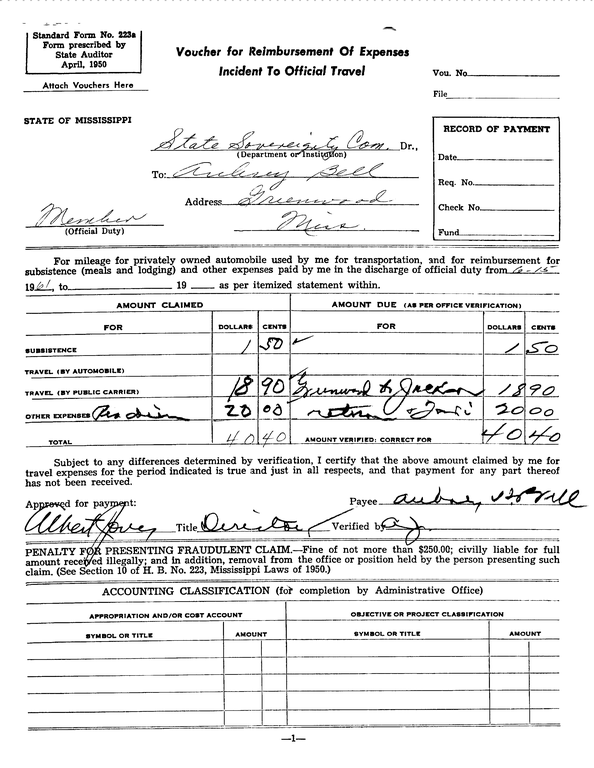 Standard Form No. 223a
Form prescribed by
State Auditor
April, 1950
Attach Vouchers Here
Voucher for Reimbursement Of Expenses
Incident To Official Travel
Vou. No.
File
STATE OF MISSISSIPPI
RECORD OF PAYMENT
Date
Req. No.
Check No.
Fund
State Sovereignty Com. Dr.,
(Department or Institution)
To: Aubrey Bell
Address Greenwood
Miss.
Member
(Official Duty)
For mileage for privately owned automobile used by me for transportation, and for reimbursement for
subsistence (meals and lodging) and other expenses paid by me in the discharge of official duty from 6-15
1961, to 19 as per itemized statement within.
AMOUNT CLAIMED AMOUNT DUE (AS PER OFFICE VERIFICATION)
FOR DOLLARS CENTS FOR DOLLARS CENTS
SUBSISTENCE 1 50 ✓ 1 50
TRAVEL (BY AUTOMOBILE)
TRAVEL (BY PUBLIC CARRIER) 18 90 Greenwood to Jackson 18 90
OTHER EXPENSES Per diem 20 00 return & Taxi 20 00
TOTAL 40 40 AMOUNT VERIFIED: CORRECT FOR 40 40
Subject to any differences determined by verification, I certify that the above amount claimed by me for
travel expenses for the period indicated is true and just in all respects, and that payment for any part thereof
has not been received.
Approved for payment: Payee Aubrey Bell
Albert Jones Title Director Verified by a.j.
PENALTY FOR PRESENTING FRAUDULENT CLAIM.—Fine of not more than $250.00; civilly liable for full
amount received illegally; and in addition, removal from the office or position held by the person presenting such
claim. (See Section 10 of H. B. No. 223, Mississippi Laws of 1950.)
ACCOUNTING CLASSIFICATION (for completion by Administrative Office)
APPROPRIATION AND/OR COST ACCOUNT OBJECTIVE OR PROJECT CLASSIFICATION
SYMBOL OR TITLE AMOUNT SYMBOL OR TITLE AMOUNT
—1—